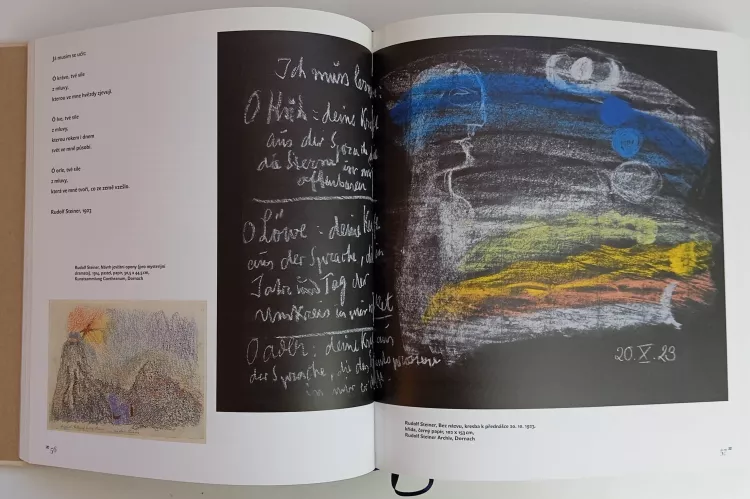 Já musím se učit:
O krávo, tvé síle
z mluvy,
kterou ve mne hvězdy zjevují.
O lve, tvé síle
z mluvy,
kterou rokem i dnem
svět ve mně působí.
O orle, tvé síle
z mluvy,
která ve mně tvoří, co ze země vzešlo.
Rudolf Steiner, 1923
Rudolf Steiner, Návrh jevištní opony (pro mysterijní
dramata), 1914, pastel, papír,
Kunstsammlung Goetheanum, Dornach
56
Ich muss lernen:
O Kuh: deine Kraft
aus der Sprache
die Sterne in mir
offenbaren
O Löwe: deine Kraft
aus der Sprache,
Jahr und Tag der
Umkreis in mir
O Adler: deine Kraft aus
der Sprache, die das
in mir
20.X.23
Rudolf Steiner, Bez názvu, kresba k přednášce 20. 10. 1923,
křída, černý papír, 102 x 153 cm,
Rudolf Steiner Archiv, Dornach
57